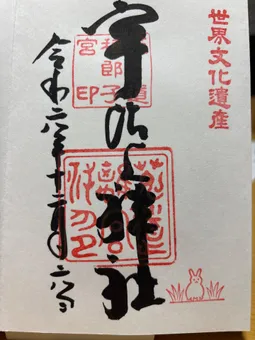 世界文化遺産
宇治上神社
菟道
稚郎子
宮印
令和六年十二月六日